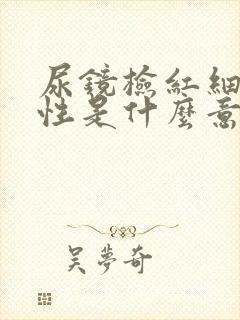 尿鏡檢紅細
性是什麼意
吴夢奇